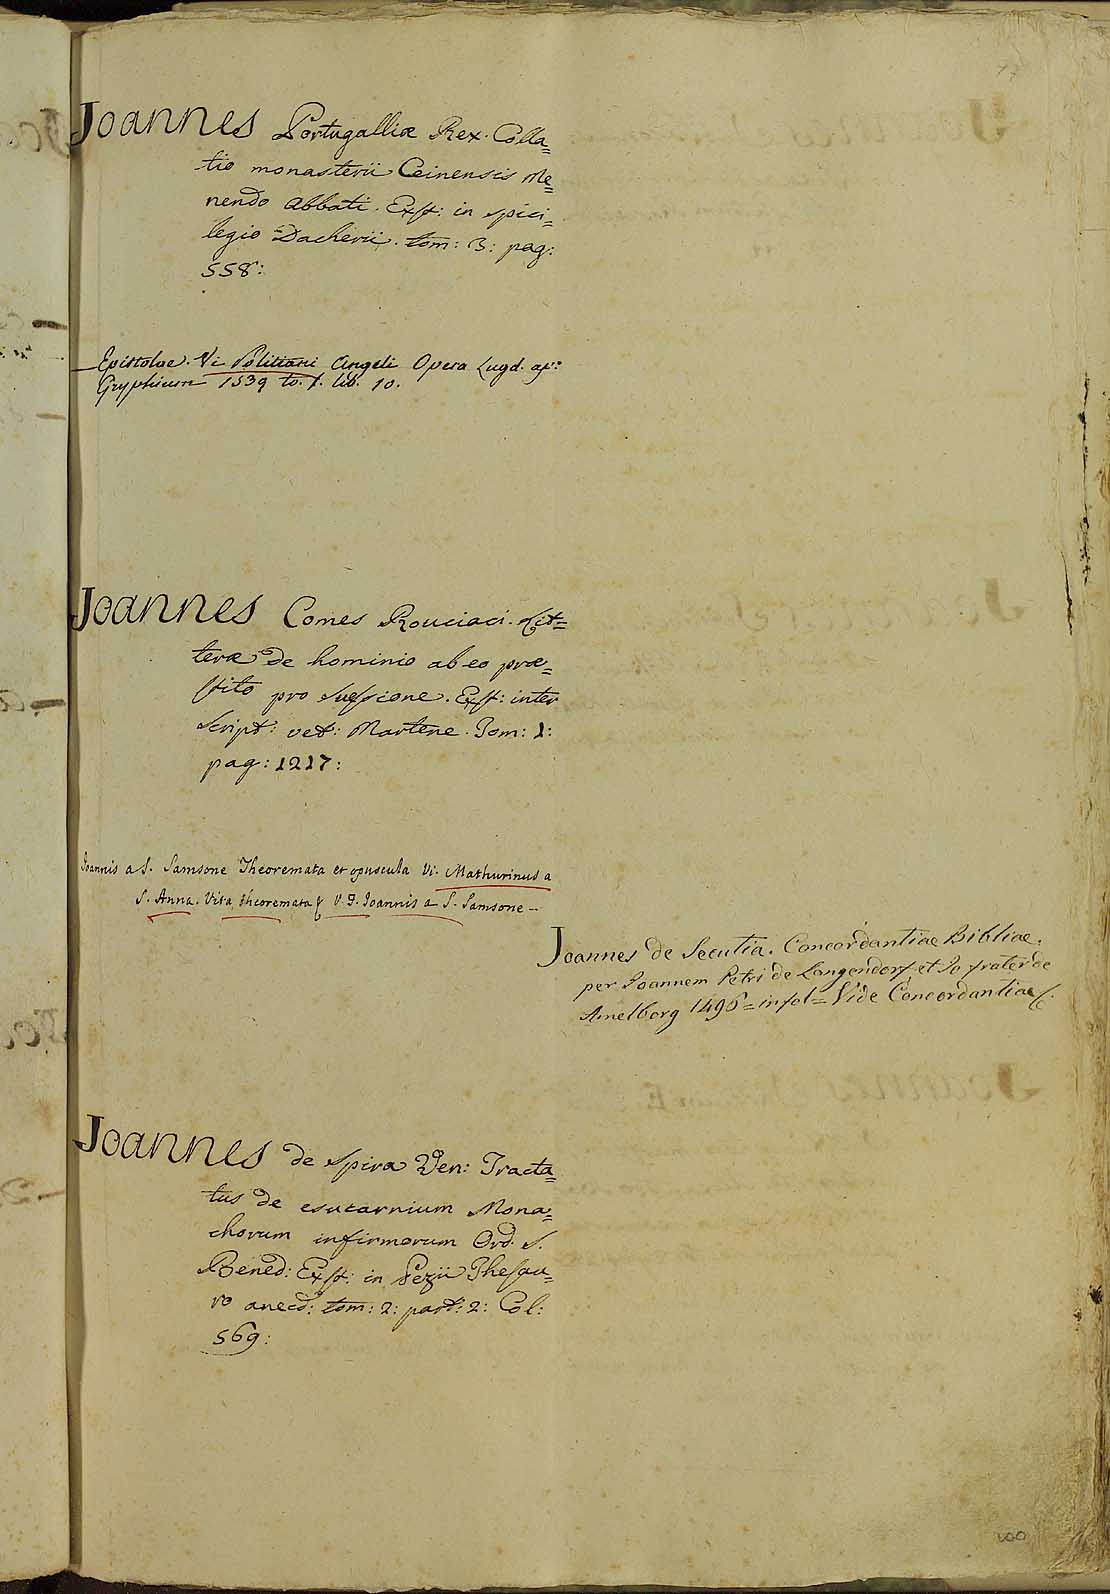 Joannes Portugalliæ Rex. Colla=
tio monasterii Ceinensis Me=
nendo Abbati. Exst: in spici=
legio Dacherii. tom: 3: pag:
558:
Epistolae. Vi Politiani Angeli Opera Lugd. ap:
Gryphium 1539 to. 1. lib. 10.
Joannes Comes Rouciaci. Lit=
teræ de hominio ab eo præ=
stito pro Suessione. Exst: inter
Script: vet: Martene. Tom: 1:
pag: 1217:
Joannis a S. Samsone Theoremata et opuscula Vi. Mathurinus a
S. Anna. Vita, theoremata & V. F. Joannis a S. Samsone -
Joannes de Secutia. Concordantiae Bibliae.
per Joannem Petri de Langendorf, et Jo frater de
Amelborg 1496 = in fol = Vide Concordantiae
Joannes de Spira Ven: Tracta=
tus de esu carnium Mona=
chorum infirmorum Ord. S.
Bened: Exst: in Pezii Thesau=
ro anecd: tom: 2: part: 2: Col:
569: